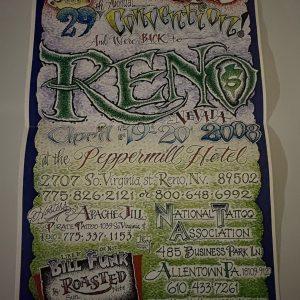 29th Annual
Convention!
And We're BACK to
RENO
NEVADA
April 2008
at the Peppermill Hotel
2707 So. Virginia st. Reno, NV. 89502
775-826-2121 or 800-648-6992
APACHE JILL
PIRATE TATTOO
775-337-1153
NATIONAL TATTOO
ASSOCIATION
485 BUSINESS PARK LN.
ALLENTOWN PA.
610-433-7261
BILL FUNK
ROASTED